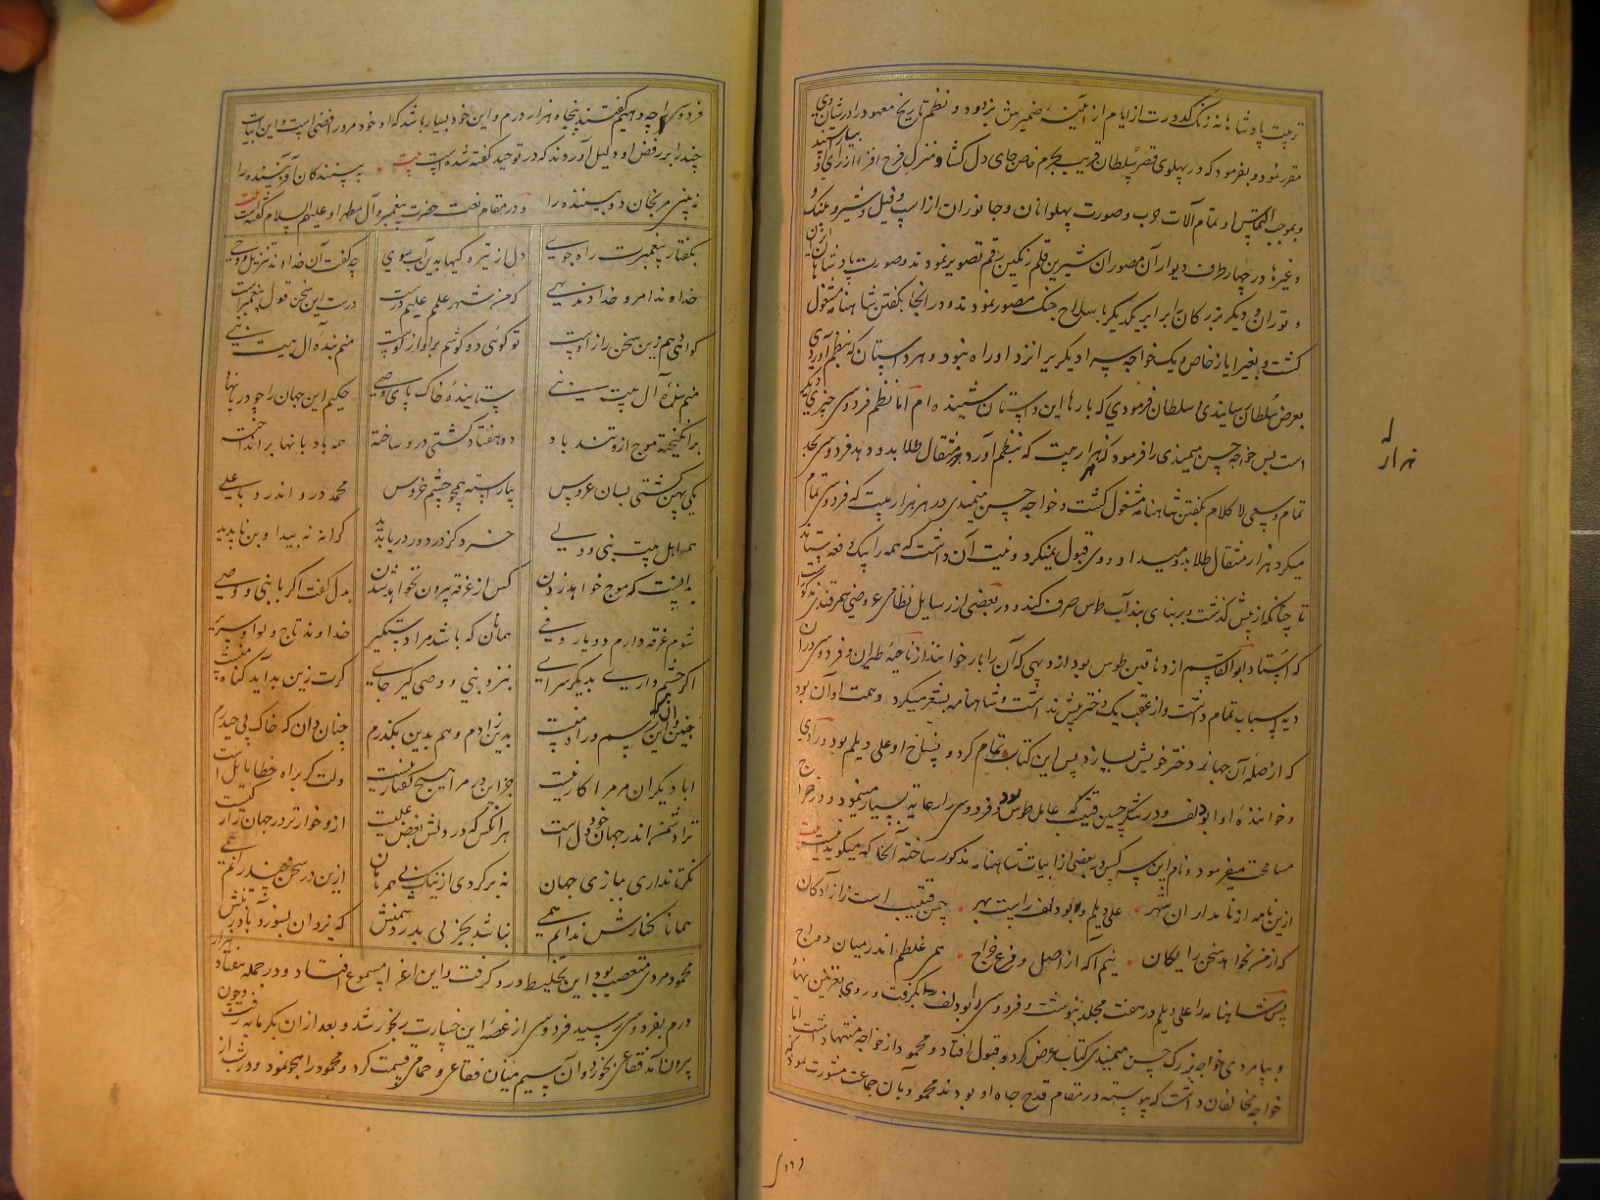 تربیت پادشاهانه زنگ کدورت از ایام از آینهٔ ضمیرش بزدود و نظم تاریخ معهود را در شان وی
مقرر نمود و بفرمود که در پهلوی قصر سلطان قریب بحرم خاص جای دل کشا و منزل فرح افزا از برای او بیاراستند
و بموجب التماس او تمام آلات حرب و صورت پهلوانان و جانوران از اسپ و فیل و شیر و پلنک و
و غیرها در چهار طرف دیوار آن مصوران شیرین قلم رنکین رقم تصویر نمودند و صورت پادشاهان ایران
و توران و دیگر بزرکان را برابر یکدیگر با سلاح جنک مصور نمودند و در انجا بکفتن شاهنامه مشغول
کشت و بغیر ایاز خاص و یک خواجه سپه او دیگر برا نزد او راه نبود و هر داستان که بنظم آوردی
بعرض سلطان رسانیدی و سلطان فرمودی که بارها این داستان شنیده ام اما نظم فردوسی چیزی دیگر
است پس خواجه حسن میمندی را فرمود که هزار بیت که بنظم آورد هزار مثقال طلا بدو دهد فردوسی بجد
تمام و سعی لا کلام بکفتن شاهنامه مشغول کشت و خواجه حسن میمندی در هر هزار بیت که فردوسی تمام
میکرد هزار مثقال طلا بدو میداد و وی قبول نمیکرد و نیت آن داشت که همه را بیک دفعه بستاند
تا چنانکه از پیش کذشت بر بنای بند آب طوس صرف کند و در بعضی از رسایل نظامی عروضی سمرقندی مذکور است
که استاد ابو القاسم از دهاقین طوس بود از دیهی که آن را باز خوانند از ناحیهٔ طبران و فردوسی در ان
دیه اسباب تمام داشت و از عقب یک دختر بیش نداشت و شاهنامه بشعر میکرد و همت او آن بود
که از صلهٔ آن جهاز دختر خویش بسازد پس این کتاب تمام کرد و نساخ او علی دیلم بود و راوی
و خوانندهٔ او ابو دلف و در شکر حیین قتیب که عامل طوس بود و فردوسی را رعایه بسیار مینمود و در خراج
مسامحت میفرمود و نام این سه کس در بعضی از ابیات شاهنامه مذکور ساخته آنجا که میکوید بیت
ازین نامه از نامداران شهر علی دیلم و بودلف راست بهر حیین قتیب است از آزادکان
که از من نخواهد سخن رایکان نیم آکه از اصل و فرع خراج همی غلطم اندر میان دواج
پس شاهنامه را علی دیلم در هفت مجلد نبوشت و فردوسی بو دلف را بکرفت و روی بغزنین نهاد
و بپامردی خواجه بزرک حسن میمندی کتاب عرض کرد و قبول افتاد و محمود از خواجه منتها داشت اما
خواجه مخالفان داشت که پیوسته در مقام قدح جاه او بودند محمود با آن جماعت مشورت نمود که
هزار
فردوسی را چه دهیم کفتند پنجاه هزار درم و این خود بسیار باشد که او خود مرد رافضی است و این ابیات
چند را بر رفض او دلیل آوردند که در توحید کفته شده است بیت به بینندکان آفریننده را
نه بینی مرنجان دو بیننده را و در مقام نعت حضرت پیغمبر و آل مطهر او علیهم السلام کفته بیت
بکفتار پیغمبرت راه جوی دل از تیره کیها بدین آب شوی چه کفت آن خداوند تنزیل و وحی
خداوند امر و خداوند نهی که من شهر علمم علیم درست درست این سخن قول پیغمبر است
کواهی دهم این سخن راز اوست تو کوئی دو کوشم بر آواز اوست منم بندهٔ آل بیت نبی
منم بندهٔ آل بیت نبی ستایندهٔ خاک پای وصی حکیم این جهان را چو دریا نهاد
برانکیخته موج ازو تند باد دو هفتاد کشتی درو ساخته همه بادبانها برافراخته
یکی پهن کشتی بسان عروس بیاراسته همچو چشم خروس محمد درو اندرو با علی
همه اهل بیت نبی و ولی خرد کز دور دریا بدید کرانه نه پیدا و بن ناپدید
بدانست که موج خواهد زدن کس از غرقه بیرون نخواهد شدن بدل کفت اکر با نبی و وصی
شوم غرقه دارم دو یار وفی همانا که باشد مرا دستکیر خداوند تاج و لوا و سریر
اکر چشم داری بدیکر سرای بنزد نبی و وصی کیر جای کرت زین بد آید کناه منست
چنین است و این رسم و راه منست بدین زادم و هم بدین بکذرم چنان دان که خاک پی حیدرم
ابا دیکران مر مرا کار نیست جز این در مرا هیچ کفتار نیست دلت کر براه خطا مایل است
ترا دشمن اندر جهان خود دل است هر آنکس که در دلش بغض علیست ازو خوارتر در جهان زار کیست
نکر تا نداری ببازی جهان نه برکردی از نیک پی همرهان ازین در سخن چند رانم همی
همانا کنارش ندانم همی نباشد بجز بی پدر دشمنش که یزدان بسوزد بآتش تنش
محمود مردی متعصب بود این تخلیط درو کرفت و این اغرا مسموع افتاد و در جمله هفتاد هزار
درم بفردوسی رسید فردوسی از غصهٔ این خسارت رنجور شد و بعد از ان بکرمابه رفت و چون
بیرون آمد فقاعی بخورد و آن سیم میان فقاعی و حمامی قسمت کرد و محمود را هجو نمود و در شب از